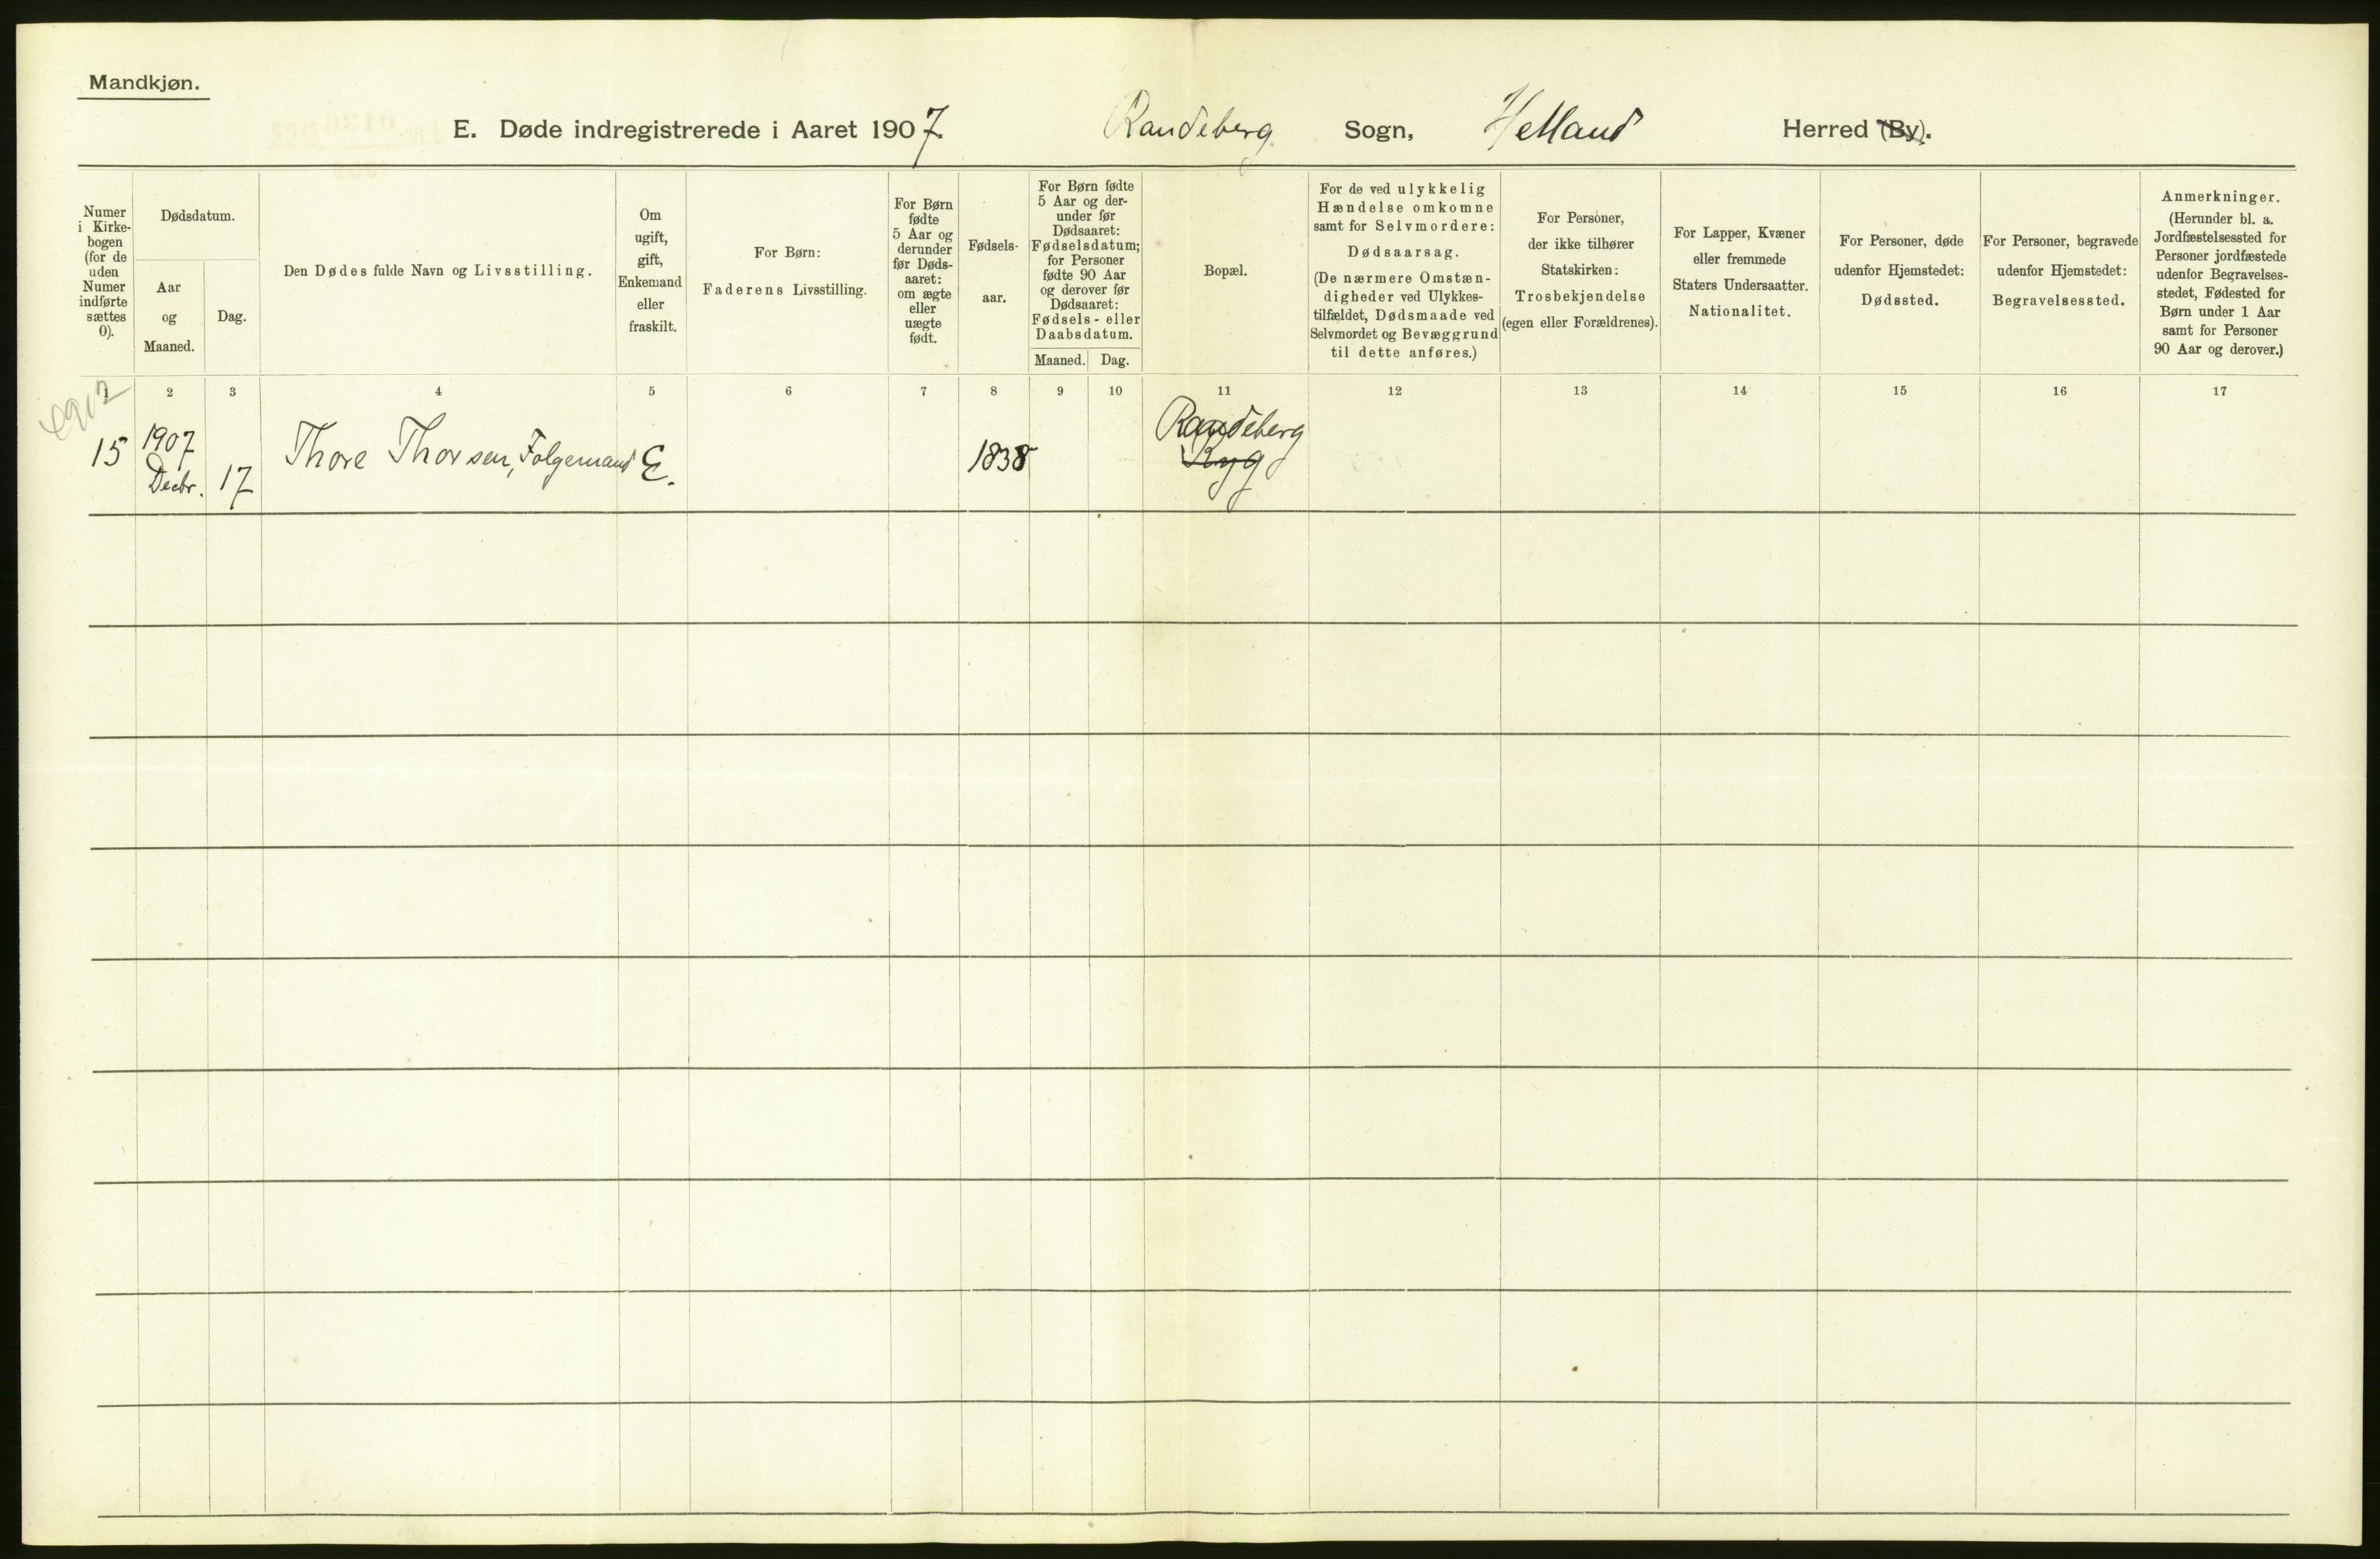 Mandkjøn.
E. Døde indregistrerede i Aaret 1907. Randeberg Sogn, Helland Herred (By).
Numer
i Kirke-
bogen
(for de
uden
Numer
indførte
sættes
0).
Dødsdatum.
Aar
og
Maaned.
Dag.
Den Dødes fulde Navn og Livsstilling.
Om
ugift,
gift,
Enkemand
eller
fraskilt.
For Børn:
Faderens Livsstilling.
For Børn
fødte
5 Aar og
derunder
før Døds-
aaret:
om ægte
eller
uægte
født.
Fødsels-
aar.
For Børn fødte
5 Aar og der-
under før
Dødsaaret:
Fødselsdatum;
for Personer
fødte 90 Aar
og derover før
Dødsaaret:
Fødsels- eller
Daabsdatum.
Maaned. Dag.
Bopæl.
For de ved ulykkelig
Hændelse omkomne
samt for Selvmordere:
Dødsaarsag.
(De nærmere Omstæn-
digheder ved Ulykkes-
tilfældet, Dødsmaade ved
Selvmordet og Bevæggrund
til dette anføres.)
For Personer,
der ikke tilhører
Statskirken:
Trosbekjendelse
(egen eller Forældrenes).
For Lapper, Kvæner
eller fremmede
Staters Undersaatter.
Nationalitet.
For Personer, døde
udenfor Hjemstedet:
Dødssted.
For Personer, begravede
udenfor Hjemstedet:
Begravelsessted.
Anmerkninger.
(Herunder bl. a.
Jordfæstelsessted for
Personer jordfæstede
udenfor Begravelses-
stedet, Fødested for
Børn under 1 Aar
samt for Personer
90 Aar og derover.)
1 2 3 4 5 6 7 8 9 10 11 12 13 14 15 16 17
15 1907 Decbr. 17 Thore Thorsen, Folgemand E. 1838 Randeberg